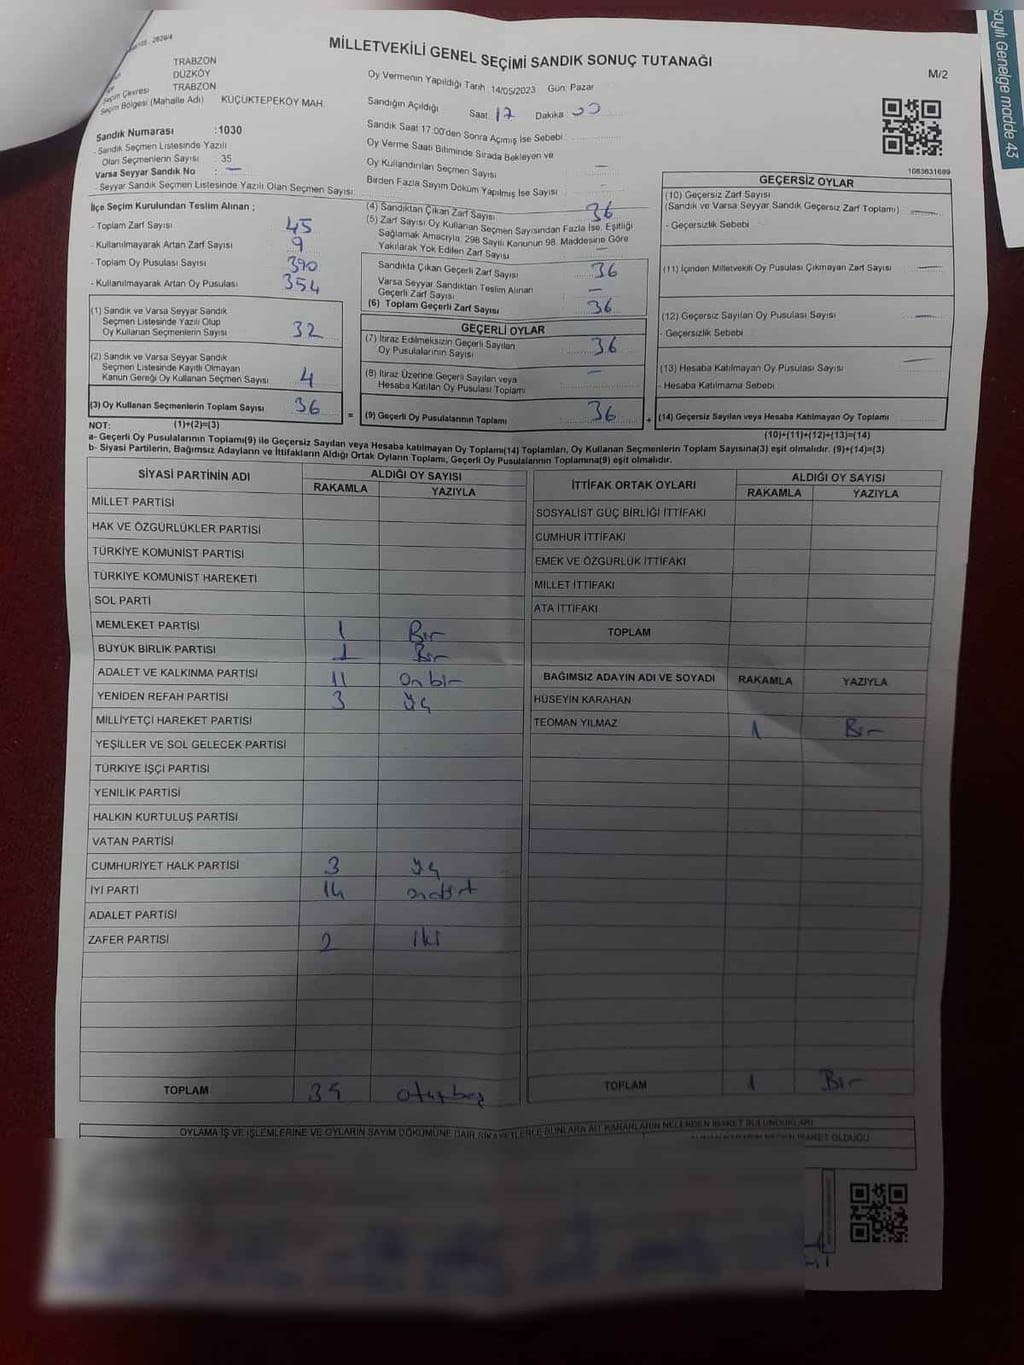 MİLLETVEKİLİ GENEL SEÇİMİ SANDIK SONUÇ TUTANAĞI
M/2
sayılı Genelge madde 43
TRABZON
DÜZKÖY
Seçim Çevresi TRABZON
Seçim Bölgesi (Mahalle Adı) KÜÇÜKTEPEKÖY MAH.
Sandık Numarası :1030
- Sandık Seçmen Listesinde Yazılı
Olan Seçmenlerin Sayısı : 35
Varsa Seyyar Sandık No : —
- Seyyar Sandık Seçmen Listesinde Yazılı Olan Seçmen Sayısı:
Oy Vermenin Yapıldığı Tarih 14/05/2023 Gün: Pazar
Sandığın Açıldığı Saat 17 Dakika 00
Sandık Saat 17:00'den Sonra Açılmış İse Sebebi
Oy Verme Saati Bitiminde Sırada Bekleyen ve
Oy Kullandırılan Seçmen Sayısı —
Birden Fazla Sayım Döküm Yapılmış İse Sayısı -
1083631699
İlçe Seçim Kurulundan Teslim Alınan ;
- Toplam Zarf Sayısı 45
- Kullanılmayarak Artan Zarf Sayısı 9
- Toplam Oy Pusulası Sayısı 390
- Kullanılmayarak Artan Oy Pusulası 354
(1) Sandık ve Varsa Seyyar Sandık
Seçmen Listesinde Yazılı Olup
Oy Kullanan Seçmenlerin Sayısı 32
(2) Sandık ve Varsa Seyyar Sandık
Seçmen Listesinde Kayıtlı Olmayan
Kanun Gereği Oy Kullanan Seçmen Sayısı 4
(3) Oy Kullanan Seçmenlerin Toplam Sayısı 36
(4) Sandıktan Çıkan Zarf Sayısı 36
(5) Zarf Sayısı Oy Kullanan Seçmen Sayısından Fazla İse, Eşitliği
Sağlamak Amacıyla, 298 Sayılı Kanunun 98. Maddesine Göre
Yakılarak Yok Edilen Zarf Sayısı —
Sandıkta Çıkan Geçerli Zarf Sayısı 36
Varsa Seyyar Sandıktan Teslim Alınan
Geçerli Zarf Sayısı —
(6) Toplam Geçerli Zarf Sayısı 36
GEÇERLİ OYLAR
(7) İtiraz Edilmeksizin Geçerli Sayılan
Oy Pusulalarının Sayısı 36
(8) İtiraz Üzerine Geçerli Sayılan veya
Hesaba Katılan Oy Pusulası Toplamı —
= (9) Geçerli Oy Pusulalarının Toplamı 36 +
GEÇERSİZ OYLAR
(10) Geçersiz Zarf Sayısı
(Sandık ve Varsa Seyyar Sandık Geçersiz Zarf Toplamı) —
- Geçersizlik Sebebi
(11) İçinden Milletvekili Oy Pusulası Çıkmayan Zarf Sayısı —
(12) Geçersiz Sayılan Oy Pusulası Sayısı —
- Geçersizlik Sebebi
(13) Hesaba Katılmayan Oy Pusulası Sayısı —
- Hesaba Katılmama Sebebi
(14) Geçersiz Sayılan veya Hesaba Katılmayan Oy Toplamı
NOT: (1)+(2)=(3)
(10)+(11)+(12)+(13)=(14)
a- Geçerli Oy Pusulalarının Toplamı(9) ile Geçersiz Sayılan veya Hesaba katılmayan Oy Toplamı(14) Toplamları, Oy Kullanan Seçmenlerin Toplam Sayısına(3) eşit olmalıdır. (9)+(14)=(3)
b- Siyasi Partilerin, Bağımsız Adayların ve İttifakların Aldığı Ortak Oyların Toplamı, Geçerli Oy Pusulalarının Toplamına(9) eşit olmalıdır.
SİYASİ PARTİNİN ADI ALDIĞI OY SAYISI
RAKAMLA YAZIYLA
MİLLET PARTİSİ
HAK VE ÖZGÜRLÜKLER PARTİSİ
TÜRKİYE KOMÜNİST PARTİSİ
TÜRKİYE KOMÜNİST HAREKETİ
SOL PARTİ
MEMLEKET PARTİSİ 1 Bir
BÜYÜK BİRLİK PARTİSİ 1 Bir
ADALET VE KALKINMA PARTİSİ 11 On bir
YENİDEN REFAH PARTİSİ 3 Üç
MİLLİYETÇİ HAREKET PARTİSİ
YEŞİLLER VE SOL GELECEK PARTİSİ
TÜRKİYE İŞÇİ PARTİSİ
YENİLİK PARTİSİ
HALKIN KURTULUŞ PARTİSİ
VATAN PARTİSİ
CUMHURİYET HALK PARTİSİ 3 Üç
İYİ PARTİ 14 ondört
ADALET PARTİSİ
ZAFER PARTİSİ 2 İki
TOPLAM 35 otuzbeş
İTTİFAK ORTAK OYLARI ALDIĞI OY SAYISI
RAKAMLA YAZIYLA
SOSYALİST GÜÇ BİRLİĞİ İTTİFAKI
CUMHUR İTTİFAKI
EMEK VE ÖZGÜRLÜK İTTİFAKI
MİLLET İTTİFAKI
ATA İTTİFAKI
TOPLAM
BAĞIMSIZ ADAYIN ADI VE SOYADI RAKAMLA YAZIYLA
HÜSEYİN KARAHAN
TEOMAN YILMAZ 1 Bir
TOPLAM 1 Bir
OYLAMA İŞ VE İŞLEMLERİNE VE OYLARIN SAYIM DÖKÜMÜNE DAİR ŞİKAYETLERLE BUNLARA AİT KARARLARIN NELERDEN İBARET BULUNDUKLARI